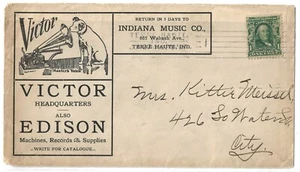 Victor
"His Master's Voice"
RETURN IN 5 DAYS TO
INDIANA MUSIC CO.,
Wabash Ave.,
TERRE HAUTE, IND.
VICTOR
HEADQUARTERS
ALSO
EDISON
Machines, Records & Supplies
...WRITE FOR CATALOGUE...
Mrs. Kitter Meissel
426 So Water St
City.